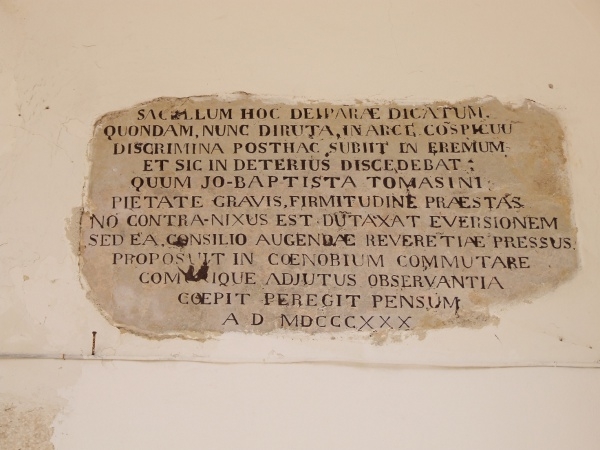 SACELLUM HOC DEIPARÆ DICATUM,
QUONDAM, NUNC DIRUTA, IN ARCE COSPICUU
DISCRIMINA POSTHAC SUBIIT IN EREMUM
ET SIC IN DETERIUS DISCEDEBAT;
QUUM JO-BAPTISTA TOMASINI
PIETATE GRAVIS, FIRMITUDINE PRAESTAS
NO CONTRA-NIXUS EST DUTAXAT EVERSIONEM
SED EA CONSILIO AUGENDAE REVERETIAE PRESSUS
PROPOSUIT IN CŒNOBIUM COMMUTARE
ADJUTUS OBSERVANTIA
CŒPIT PEREGIT PENSUM
A D MDCCCXXX